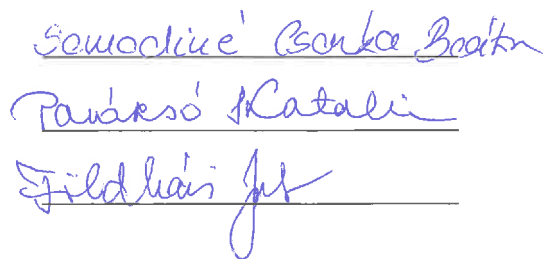 Somodiné Csonka Beáta
Panáksó Katalin
Földházi